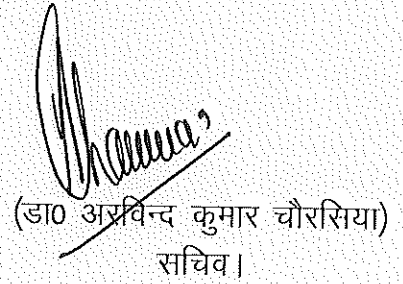 (डा0 अरविन्द कुमार चौरसिया)
सचिव।